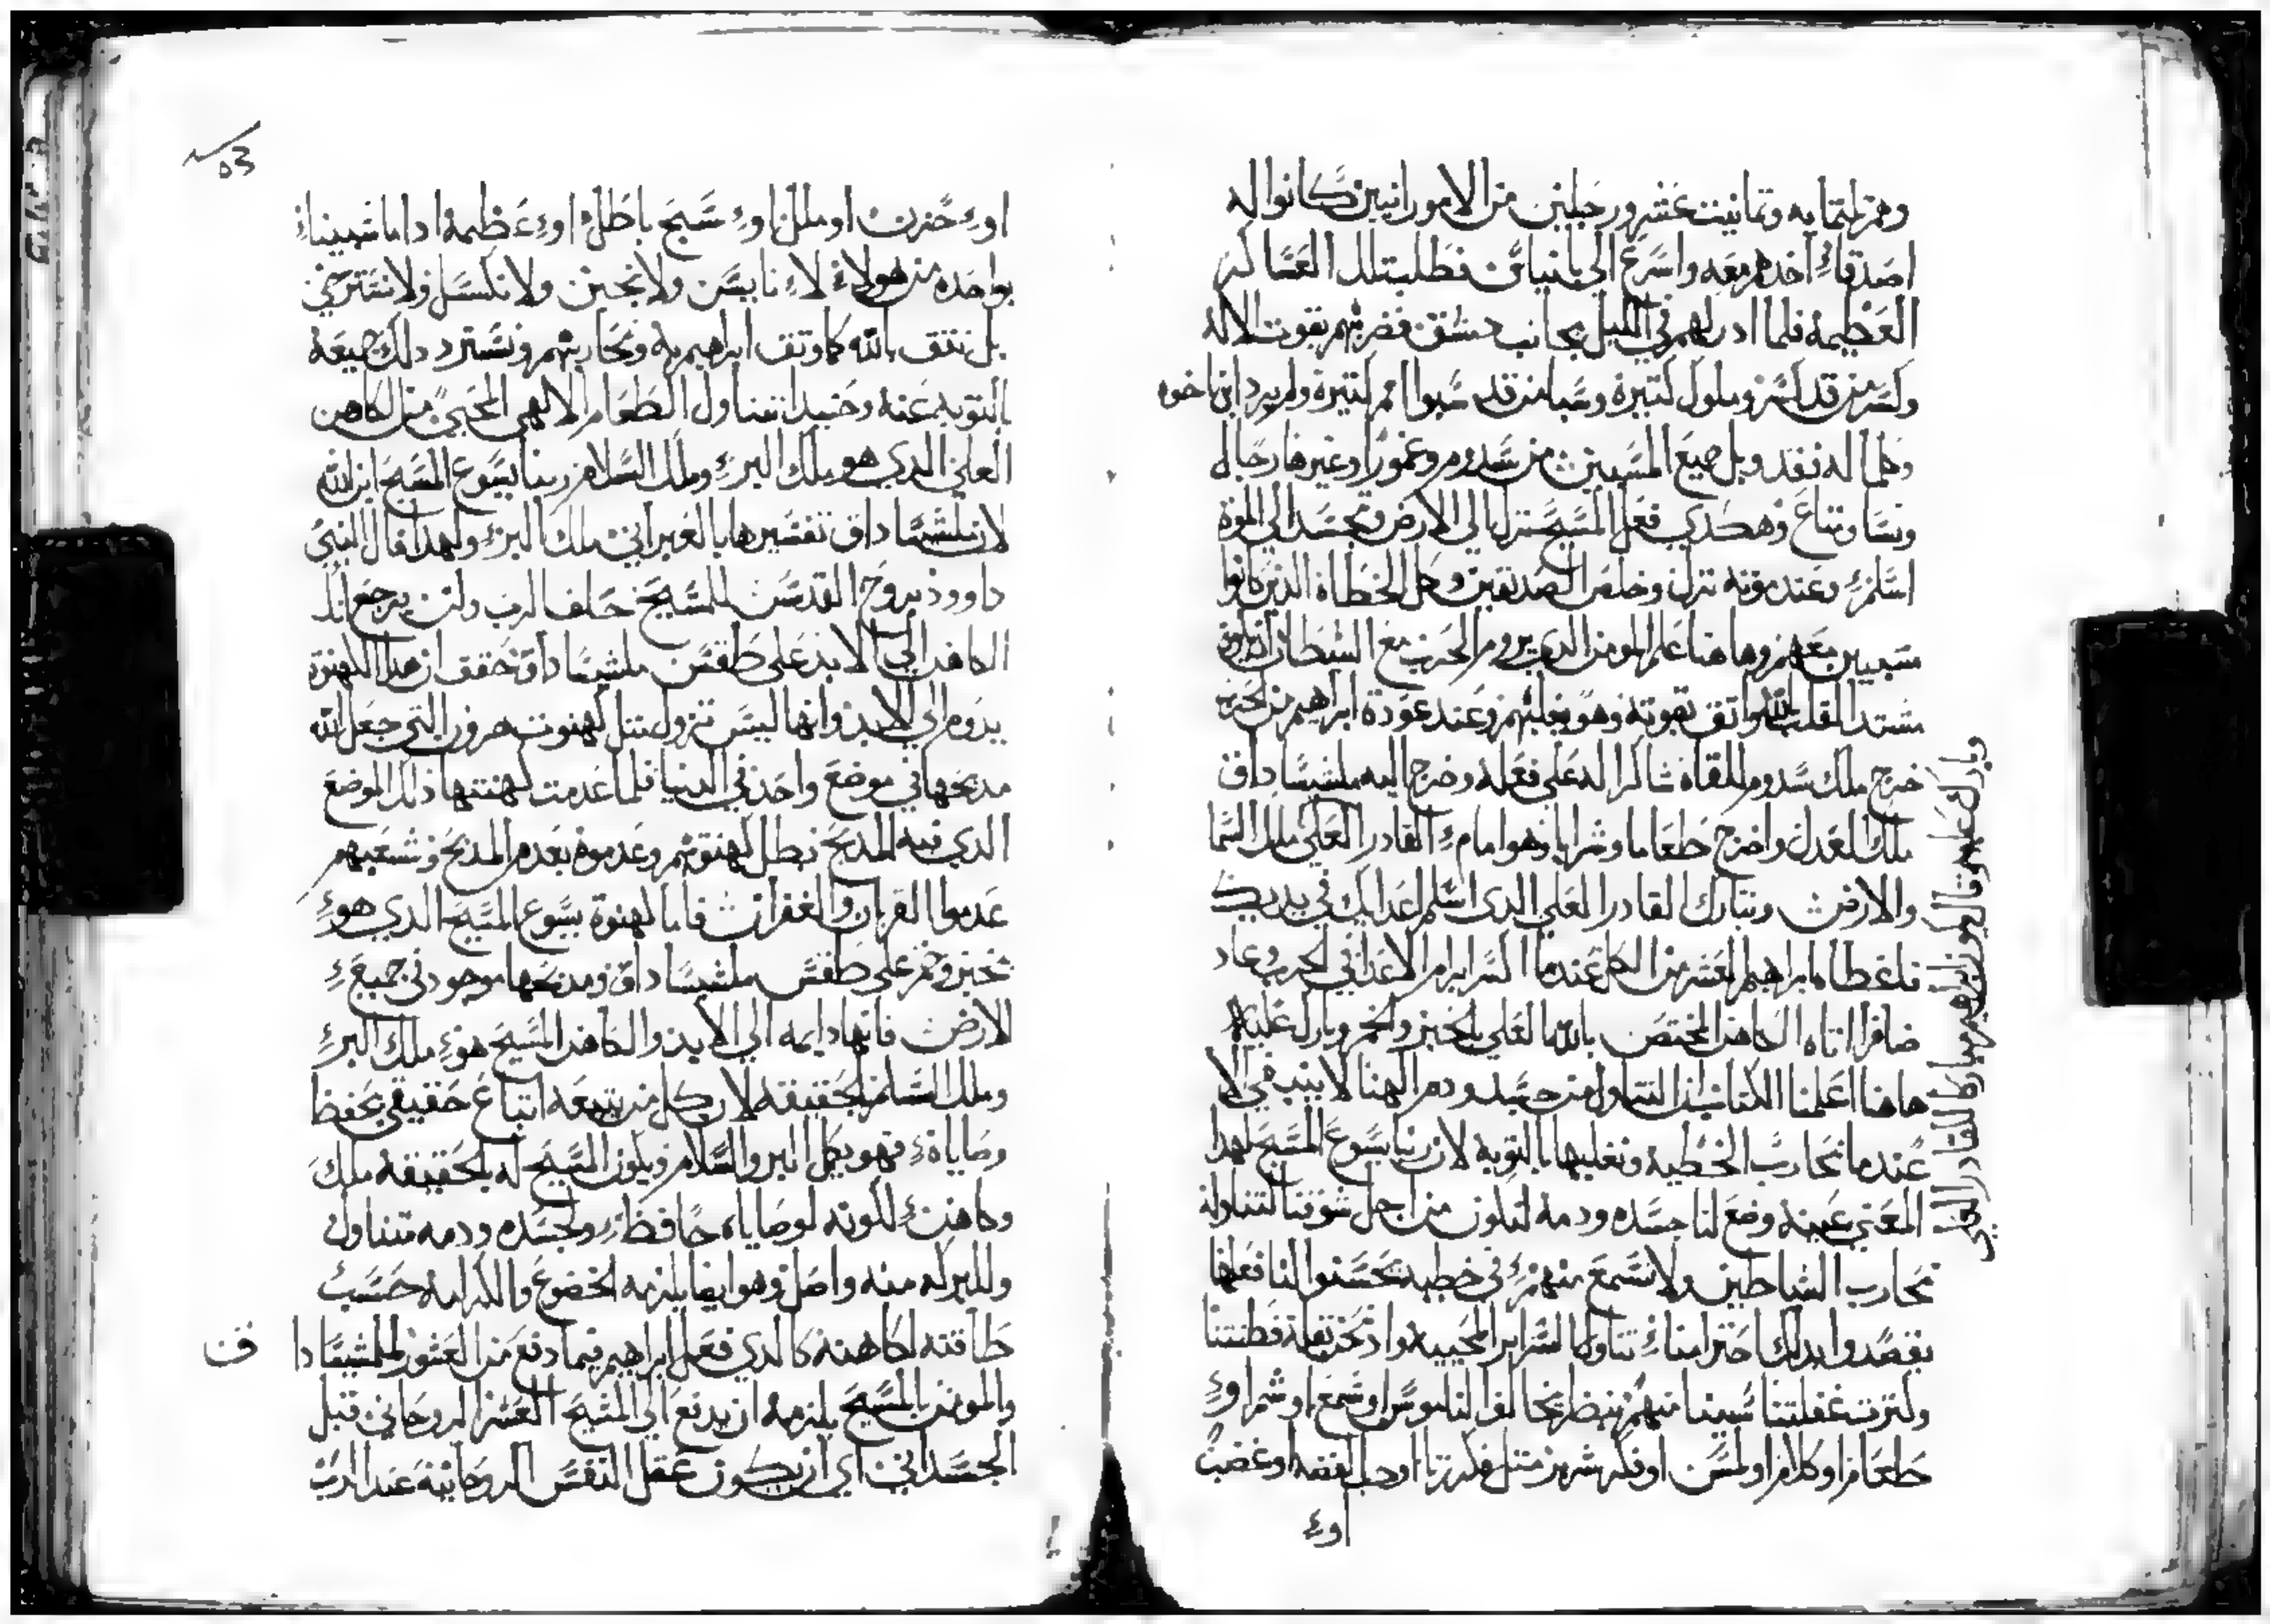 وهم تلتمايه وتمانيت عشر ورجلين من الامورانيين كانوا له
اصدقاء اخدهم معه واسرع الي بانياس فطلب تلك العساكر
العظيمه فلما ادركهم في الليل بجانب دمشق فضربهم بقوت الاله
وكسر من قد كسرو ملوك كتيرة وسبا من قد سبوا امم كتيرة ولم يرد ابن اخوه
وكلما له فقد وبل جميع المسبيين من سدوم وغمورا وغيرها رجال
ونسا ومتاع وهكدي فعل المسيح نزل الي الارض وتجسد الي الموة
اسلم وعند موته نزل وخلص الصديقين وكل الخطاة الذين كانوا
مسبيين معهم وهاهنا علم المومن الدي يروم الحرب مع الشيطان ان يكون
مشتد القلب بالله واتق بقوته وهو يغلبهم وعند عودة ابراهيم من الحرب
خرج ملك سدوم للقاة شاكرا له على فعله وخرج اليه ملشيساداق
ملك العدل واخرج طعاما وشرابا وهو امام القادر العلي ملك السما
والارض وتبارك القادر العلي الدي اسلم اعدايك في يديك
فاعطا ابراهيم العشر من الكل عندما السر ابرام الاعدا في الحرب وعاد
ضافرا اتاه الكاهن المختص بالله العلي بالخبز والخمر وبارك عليه
هاهنا اعلمنا الكتاب ان التناول من جسد ودم الهنا لا ينبغي الا
عندما نحارب الخطية ونغلبها بالتوبه لان ربنا يسوع المسيح لهدا
المعني عينه وضع لنا جسده ودمه لنكون من اجل شوقنا لتناوله
نحارب الشياطين ولا نسمع منهم في خطيه يحسنوا لنا فعلها
يقصدوا بدلك احترامنا تناول السراير المحييه وادا نحن بقلة فطنتنا
وكترت غفلتنا سبينا منهم بنظر يخالف الناموس او سمع او شم او
طعام او كلام او لمس او فكر شر من متل فكر زنا او حب الفضه او غضب
او
وبارك عليه وقال هوذا ابراهيم مباركا للقادر العلي
53
او حزن او ملل او سبح باطل او عظمه ادا ما سبينا
بواحده من هولاء لا نايس ولا نجبن ولا نكسل ولا نسترخي
بل نتق بالله كما وتق ابراهيم به ونحاربهم ونسترد دلك جميعه
بالتوبه عنه وحينيد نتناول الطعام الالهي المحيي من الكاهن
العلي الدي هو ملك البر وملك السلام ربنا يسوع المسيح ابن الله
لان ملشيساداق تفسيرها بالعبراني ملك البر ولهدا قال النبي
داوود بروح القدس للمسيح حلف الرب ولن يرجع انك
الكاهن الي الابد على طقس ملشيساداق تحقق ان هدا الكهنوة
يدوم الي الابد وانها ليس تزول متل كهنوت هرون التي جعل الله
مدبحها في موضع واحد في الدنيا فلما عدمت كهنتها ذلك الموضع
الدي فيه المدبح بطل كهنوتهم وعدموه بعدم المدبح وشعبهم
عدموا القربان والغفران فاما كهنوة يسوع المسيح الدي هو
خبز وخمر على طقس ملشيساداق ومدبحها موجود في جميع
الارض فانها دايمه الي الابد والكاهن المسيح هو ملك البر
وملك السلم بالحقيقه لان كل من يتبعه اتباع حقيقي بحفظ
وصاياه فهو يكمل البر والسلام ويكون المسيح له بالحقيقه ملك
وكاهن لكونه لوصاياه حافظ ولجسده ودمه متناول
وللبركه منه واصل وهو ايضا يلزمه الخضوع والكرامه حسب
طاقته لكاهنه كالدي فعل ابراهيم فيما دفع من العشور لملشيسادا ق
والمومن بالمسيح يلزمه ان يدفع الي المسيح العشر الروحاني قبل
الجسداني اي ان يكون عقل النفس الروحانيه عند الرب